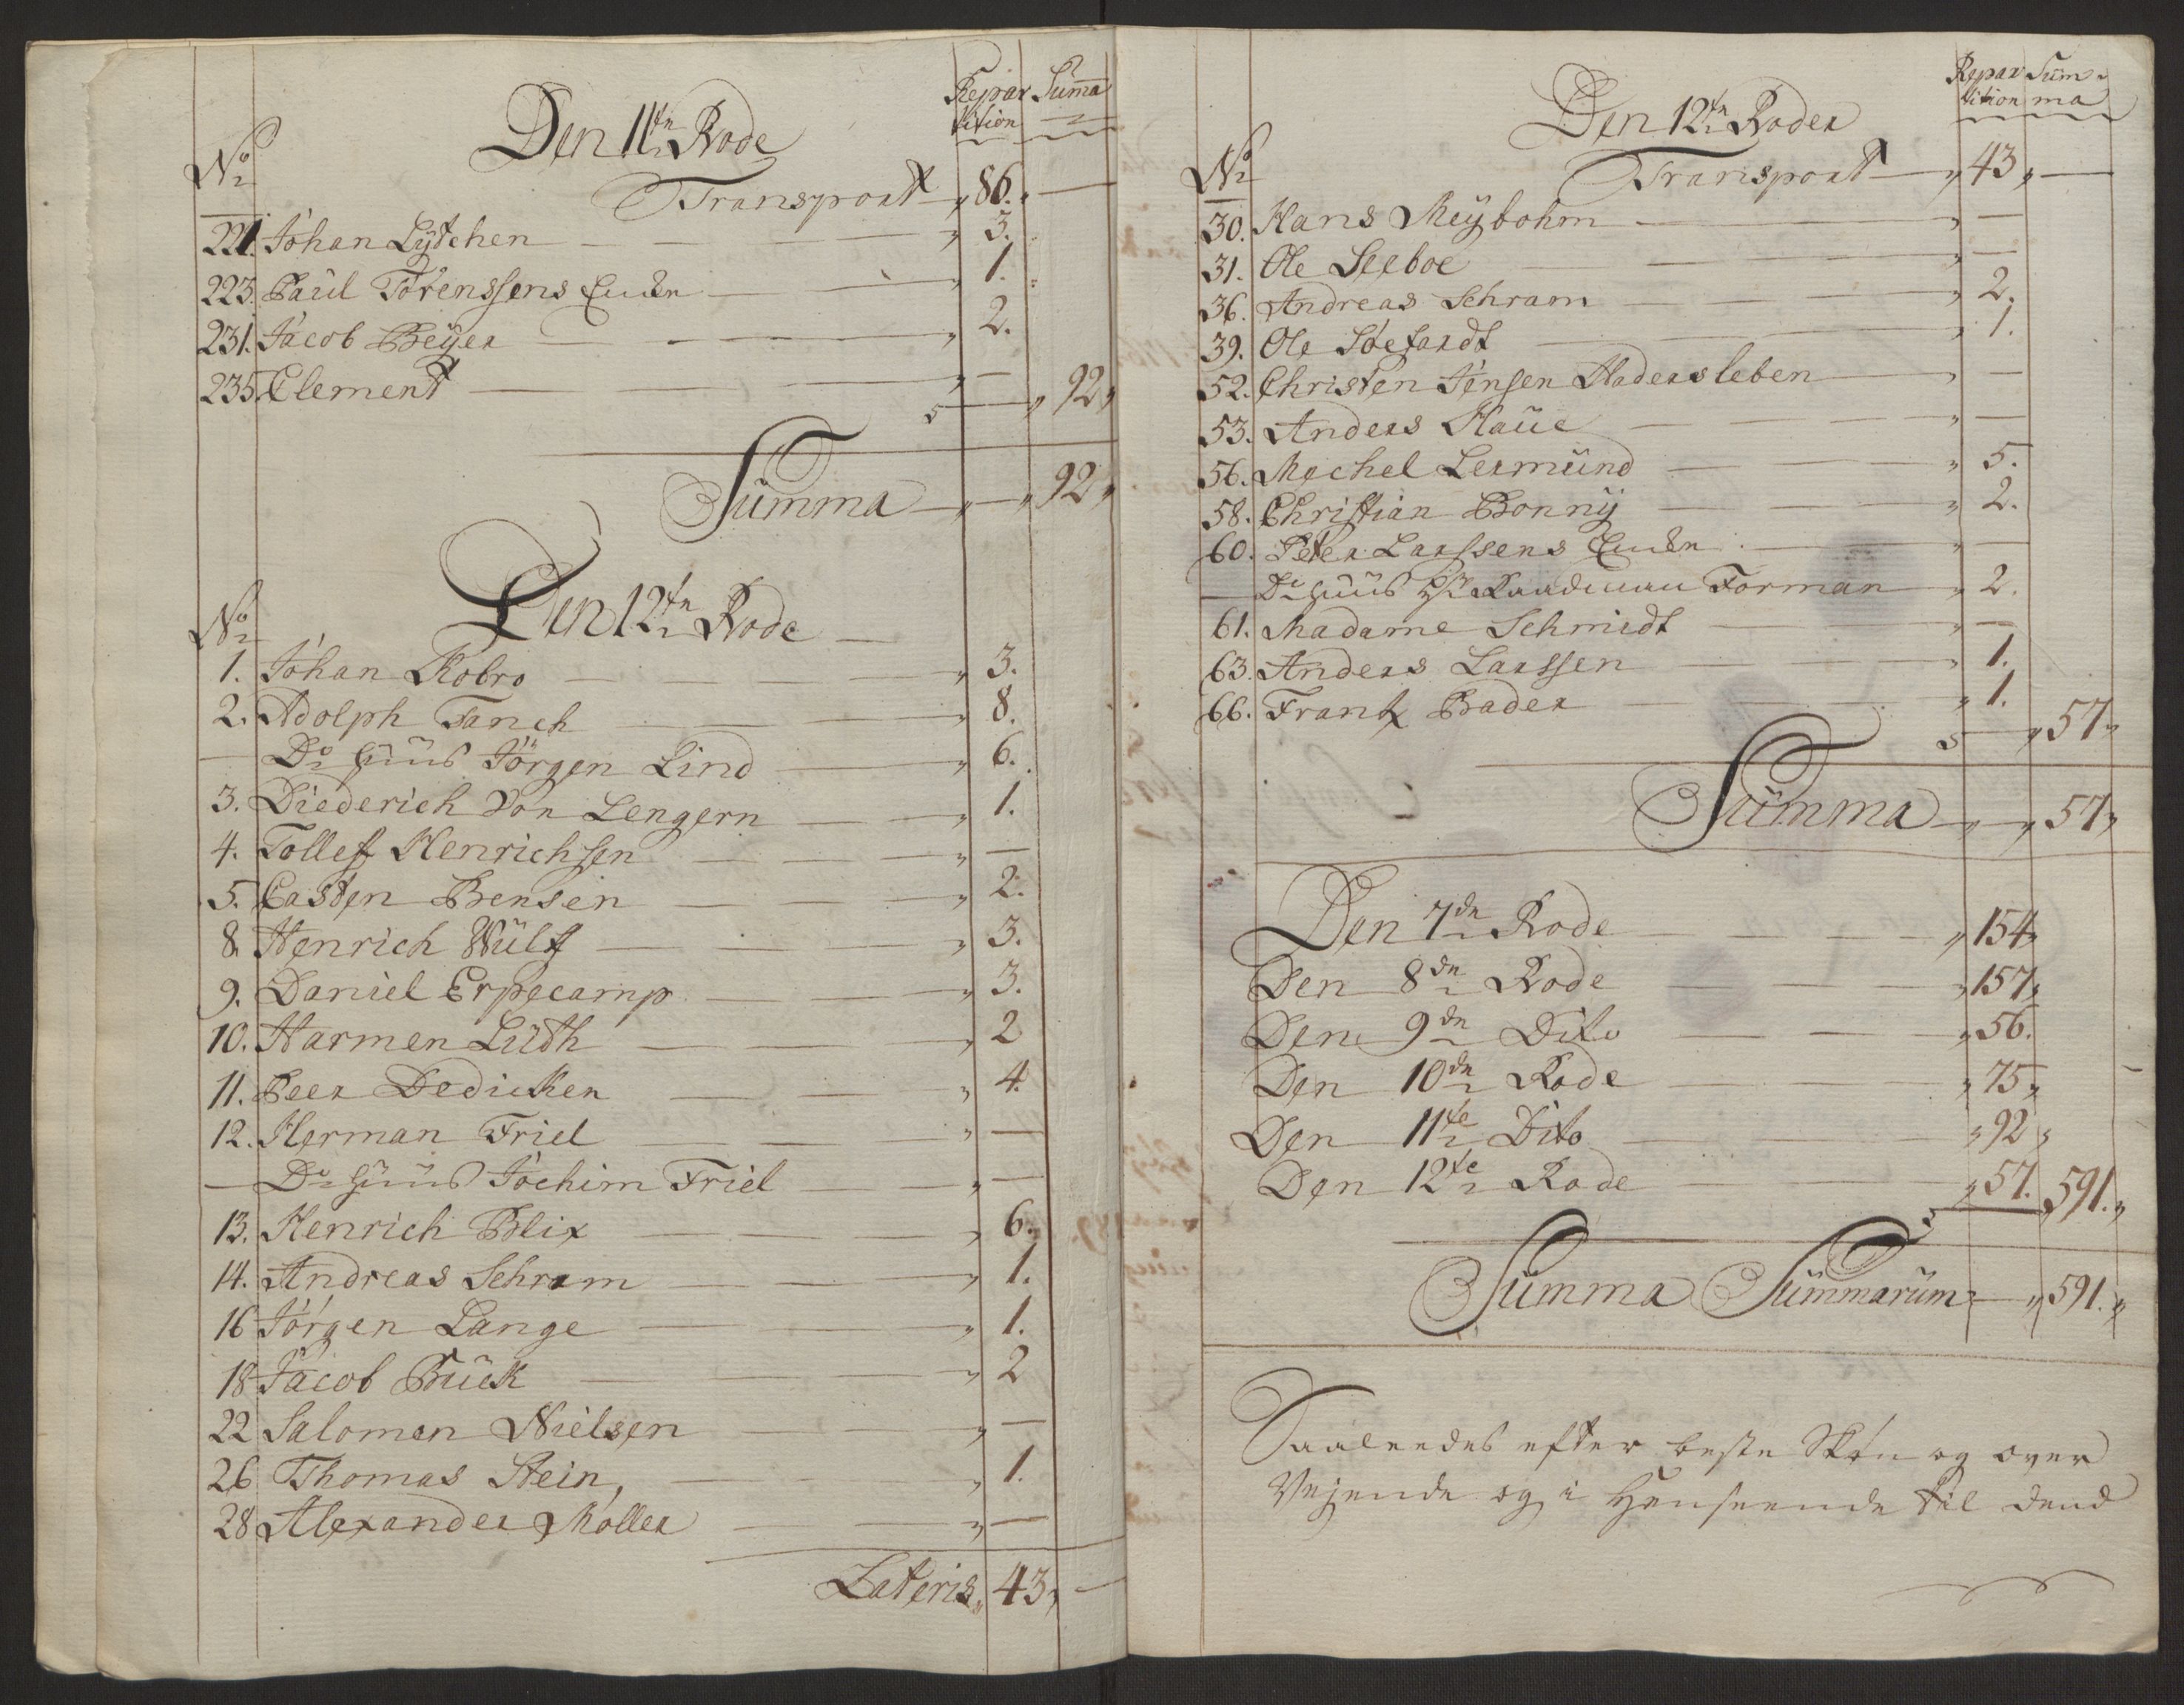 Repar Summa
tition
Den 11tn Rode
No
Transport „ 86. „ —
221. Johan Lytchen — „ 3.
223. Paul Torenssens Encke — „ 1.
231. Jacob Beyer — „ 2.
235. Element — „ —
— „ 92 „
Summa — „ — „ 92 „
Den 12tn Rode
No
1. Johan Kobro — „ 3.
2. Adolph Tanch — „ 8.
— Do Huus Jörgen Lind — „ 6.
3. Diederich Von Lengern — „ 1.
4. Tollef Henrichsen — „ —
5. Casten Bensen — „ 2.
8. Henrich Wülf — „ 3.
9. Daniel Erpecamp — „ 3.
10. Harmen Lüth — „ 2
11. Peer Dedicker — „ 4.
12. Herman Friel — „ —
— Do Huus Jochim Friel — „ —
13. Henrich Blix — „ 6.
14. Andreas Schram — „ 1.
16 Jörgen Lange — „ 1.
18 Jacob Buck — „ 2
22 Salomon Nielsen — „ —
26 Thomas Stein, — „ 1.
28 Alexander Moller — „ —
Lateris „ 43 „ —
Repar Sum
tition ma
Den 12tn Roder
No
Transport — „ 43 „ —
30. Hans Meybohm — „ —
31. Ole Seeboe — „ —
36. Andreas Schram — „ 2.
39. Ole Söefardt — „ 1.
52. Christen Jensen Hadersleben — „ —
53. Anders Haue — „ —
56. Mechel Lermund — „ 5.
58. Christian Bonny — „ 2.
60. Peter Larssens Encke — „ —
— Do Huus Hr Raadman Forman — „ 2.
61. Madame Schmidt — „ —
63. Anders Larssen — „ 1.
66. Frantz Bader — „ 1.
— „ 57 „
Summa — „ — „ 57 „
Den 7de Rode — „ 154 „
Den 8de Rode — „ 157 „
Den 9de Dito — „ 56.
Den 10de Rode — „ 75 „
Den 11te Dito — „ 92 „
Den 12te Rode — „ 57. 591. „
Summa Summarum — „ 591. „
Saaleedes efter beste Skøn og over
Vejende og i Henseende til dend